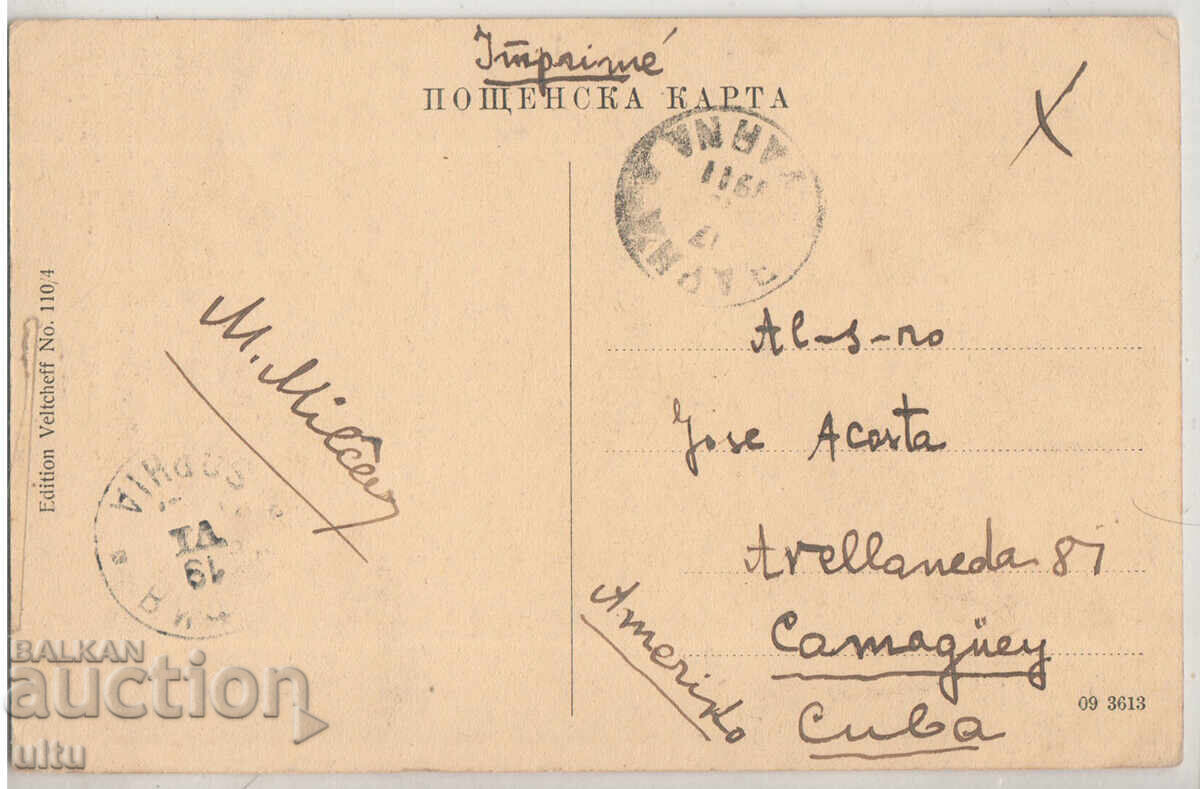 Imprimé
ПОЩЕНСКА КАРТА
X
VARNA
ВАРНА
1911
Edition Veltcheff No. 110/4
M. Milčev
SOPHIA
VI
19
Al-s-ro
Jose Acosta
Avellaneda 87
Camagüey
Cuba
Ameriko
09 3613
BALKAN
auction
ultu